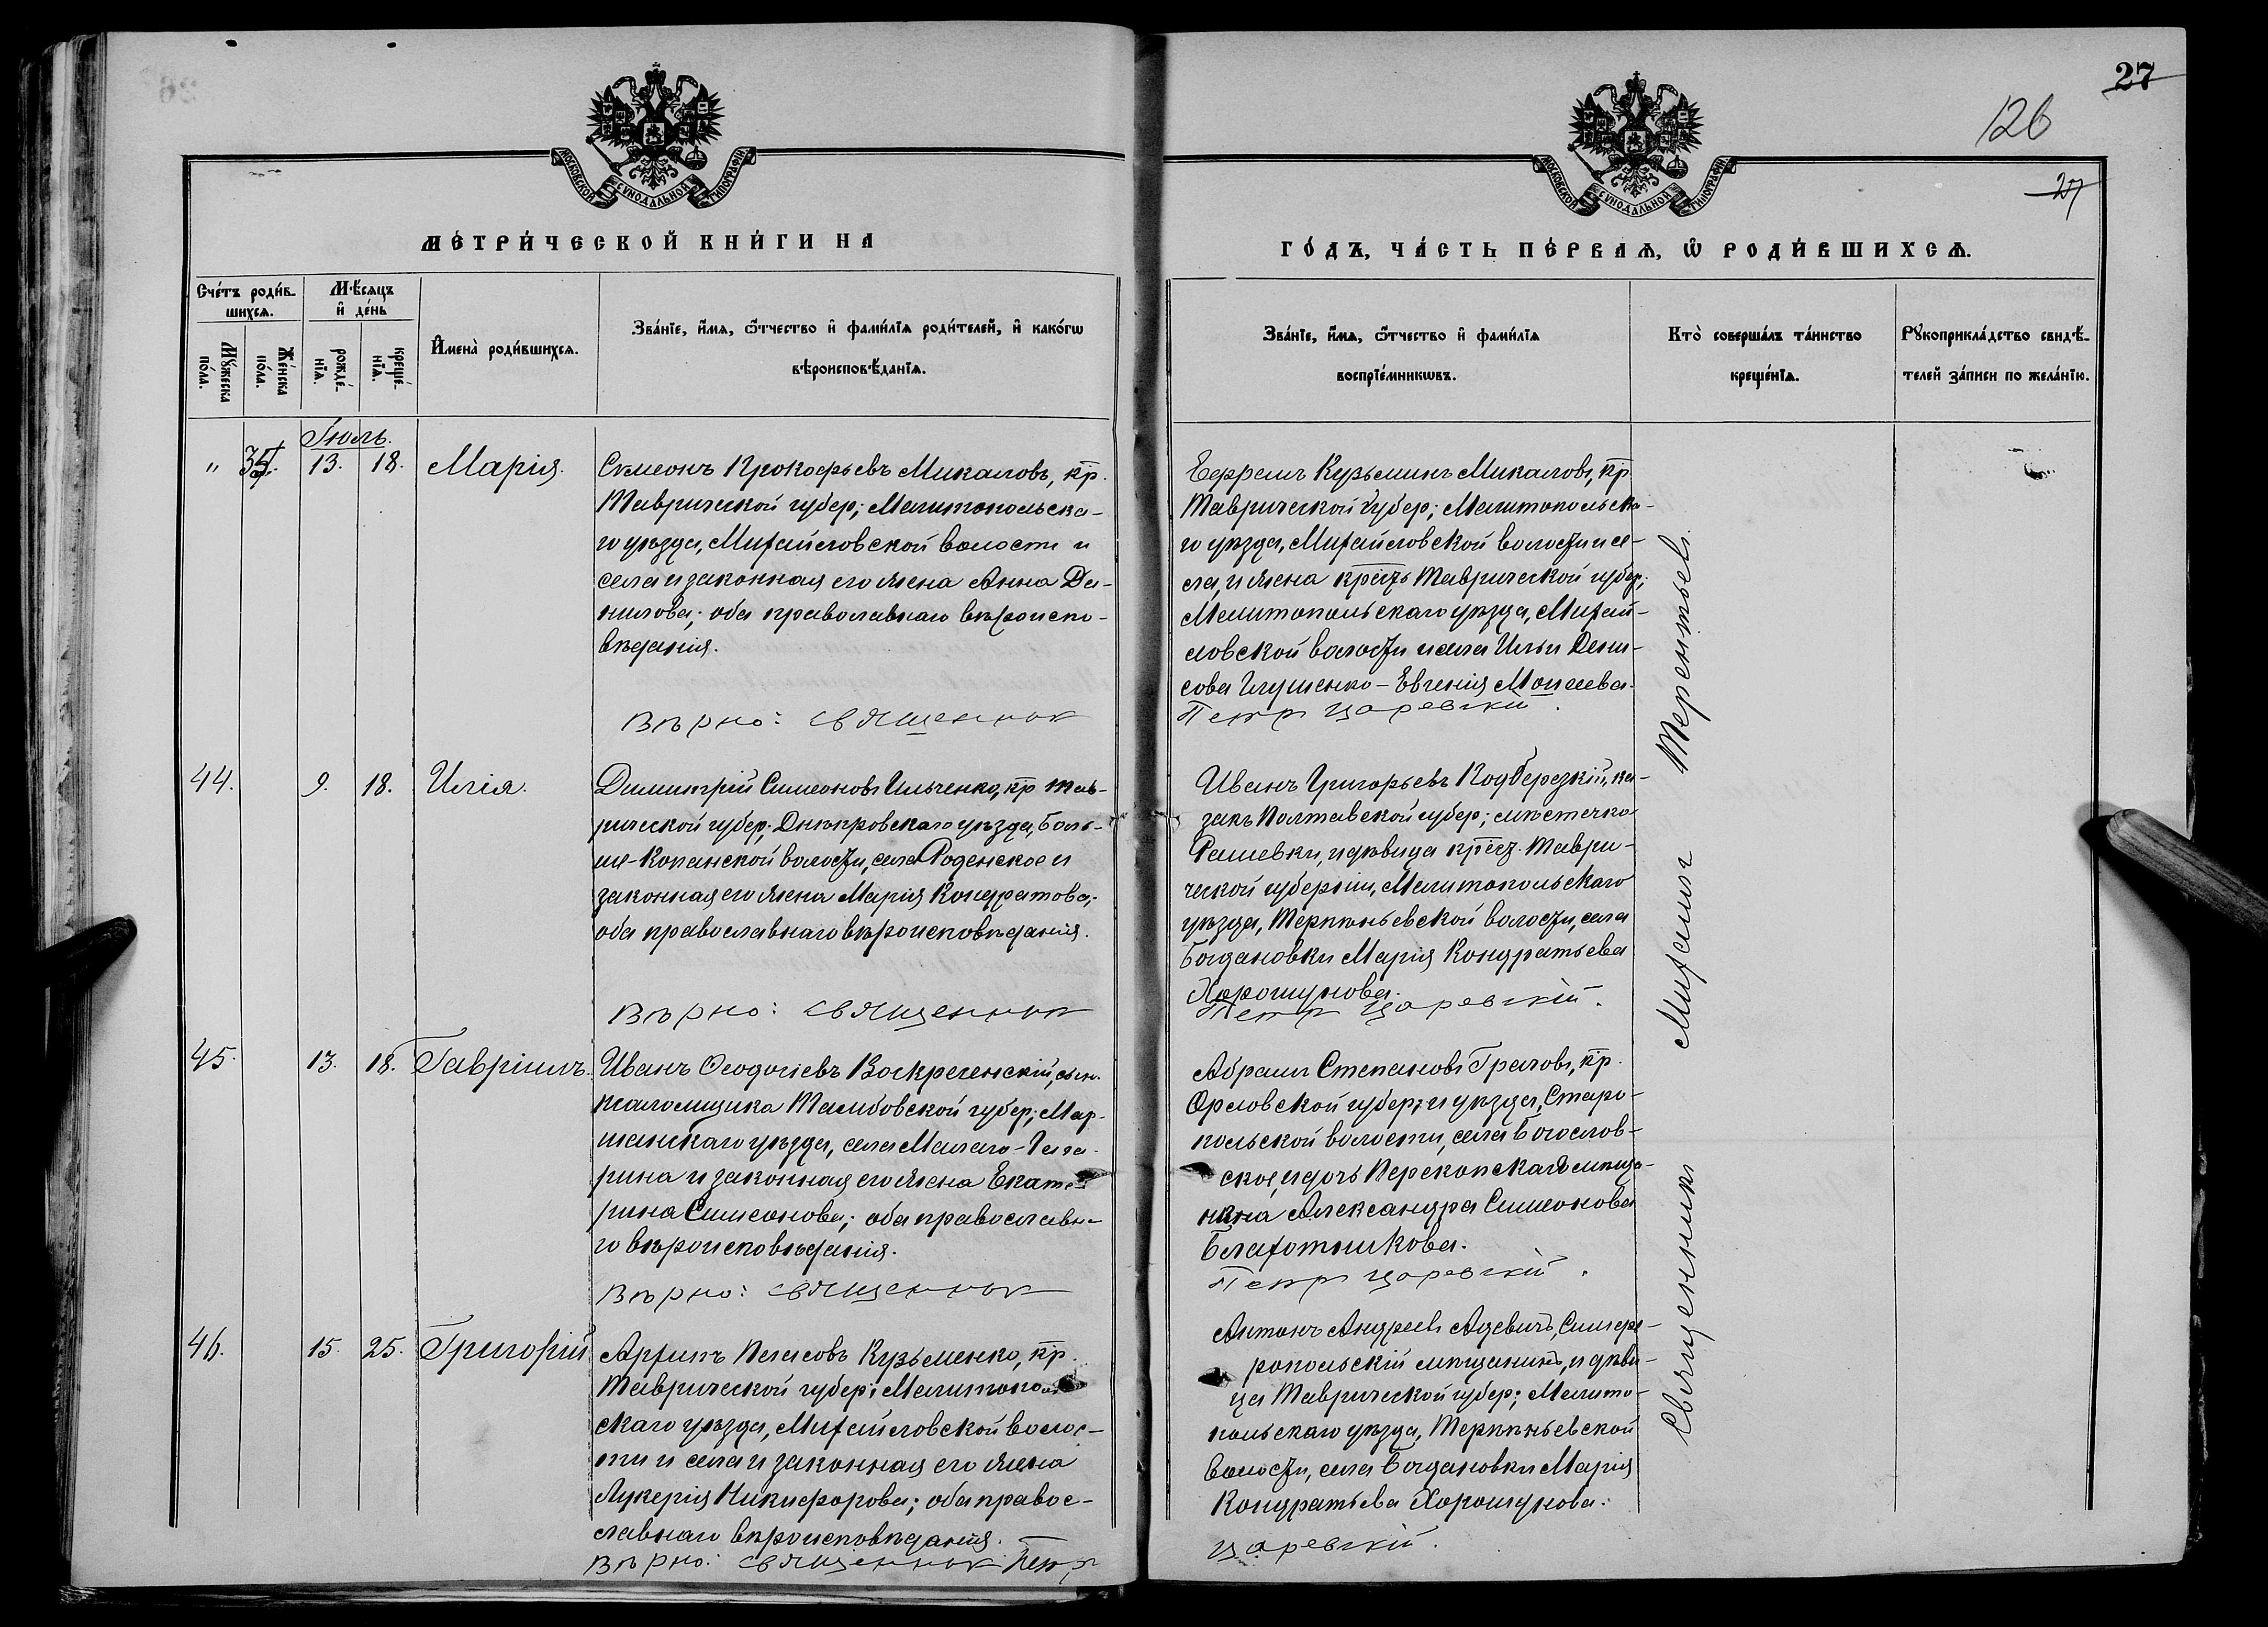 27
126
27
МОСКОВСКОЙ СѴНОДАЛЬНОЙ ТИПОГРАФІИ
МЕ́ТРИ́ЧЕСКОЙ КНИ́ГИ НА
Сче́тъ роди́в-
шихся.
Мѣ́сяцъ
и҆ де́нь
Мꙋ́жеска
по́ла.
Же́нска
по́ла.
рожде́-
нїѧ.
креще́-
нїѧ.
И҆мена̀ роди́вшихсѧ.
Зва́нїе, и҆́мѧ, ѻ҆́тчество и҆ фами́лїѧ роди́телей, и҆ како́гѡ
вѣроисповѣ́данїѧ.
Іюль.
" 35. 13. 18. Марія.
Симеонъ Прокофьевъ Микаловъ, кр.
Таврической губер; Мелитопольска-
го уѣзда, Михайловской волости и
села и законная его жена Анна Да-
нилова; оба православнаго вѣроиспо-
вѣданія.
Вѣрно: священник
44. 9. 18. Илія.
Димитрій Симеоновъ Ильченко, кр Тав-
рической губер; Днѣпровскаго уѣзда, Боль-
ше-Копанской волости, села Роденское и
законная его жена Марія Кондратова;
оба православнаго вѣроисповѣданія.
Вѣрно: священник
45. 13. 18. Гавріилъ.
Иванъ Ѳеодосіевъ Воскресенскій, сын.
псаломщика Тамбовской губер; Мор-
шанскаго уѣзда, села Малаго-Гага-
рина и законная его жена Екате-
рина Симеонова; оба православна-
го вѣроисповѣданія.
Вѣрно: священник
46. 15. 25. Григорій
Архипъ Власовъ Кузьменко, кр.
Таврической губер; Мелитополь
скаго уѣзда, Михайловской волос-
ти и села и законная его жена
Лукерія Никифорова; оба правос-
лавнаго вѣроисповѣданія.
Вѣрно: священник Петр
МОСКОВСКОЙ СѴНОДАЛЬНОЙ ТИПОГРАФІИ
ГО́ДЪ, ЧА́СТЬ ПЕ́РВАѦ, Ѡ҆ РОДИ́ВШИХСѦ.
Зва́нїе, и҆́мѧ, ѻ҆́тчество и҆ фами́лїѧ
воспрїе́мникѡвъ.
Кто̀ соверша́лъ та́инство
креще́нїѧ.
Рꙋкоприкла́дство свидѣ́-
телей за́писи по жела́нїю.
Ефремъ Кузьминъ Микаловъ, кр
Таврической губер; Мелитопольска-
го уѣзда, Михайловской волости и се-
ла, и жена крест Таврической губер;
Мелитопольскаго уѣзда, Михай-
ловской волости и села Ильи Дени-
сова Глушенко - Евгенія Моисеева.
Петр Царевскій.
Иванъ Григорьевъ Подберезкій, ка-
закъ Полтавской губер; мѣстечка
Рашевки, и дѣвица крест. Таври-
ческой губерніи, Мелитопольскаго
уѣзда, Терпѣньевской волости, села
Богдановки Марія Кондратьева
Хорошунова.
Петр Царевскій.
Абрамъ Степановъ Грачовъ, кр.
Орловской губер; и уѣзда, Старо-
польской волости, села Богослов-
ское, и дочь Перекопскаго мѣща-
нина Александра Симеонова
Блахотникова.
Петр Царевскій.
Антонъ Андреевъ Адевичъ, Симфе-
ропольскій мѣщанинъ, и дѣви-
ца Таврической губер; Мелито-
польскаго уѣзда, Терпѣньевской
волости, села Богдановки Марія
Кондратьева Хорошунова.
Царевскій.
Священникъ Михаилъ Терентьевъ.